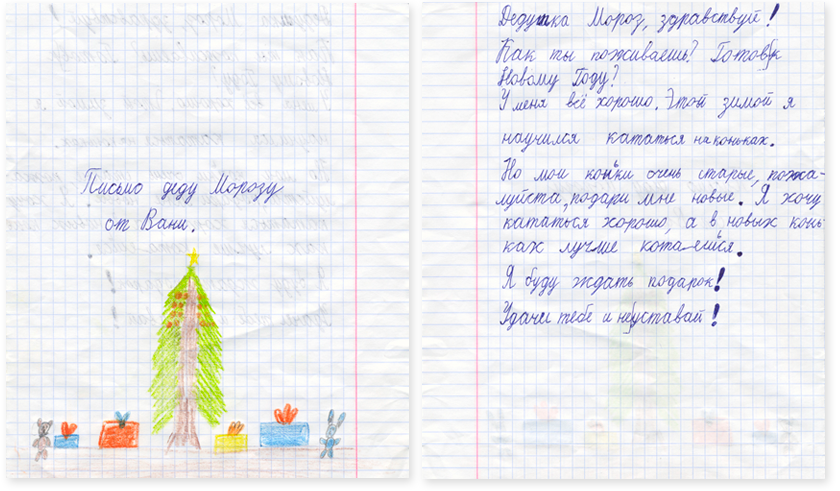 Письмо деду Морозу
от Вани.
Дедушка Мороз, здравствуй!
Как ты поживаешь? Готов к
Новому Году?
У меня всё хорошо. Этой зимой я
научился кататься на коньках.
Но мои коньки очень старые, пожа-
луйста, подари мне новые. Я хочу
кататься хорошо, а в новых конь-
ках лучше катаешься.
Я буду ждать подарок!
Удачи тебе и не уставай!